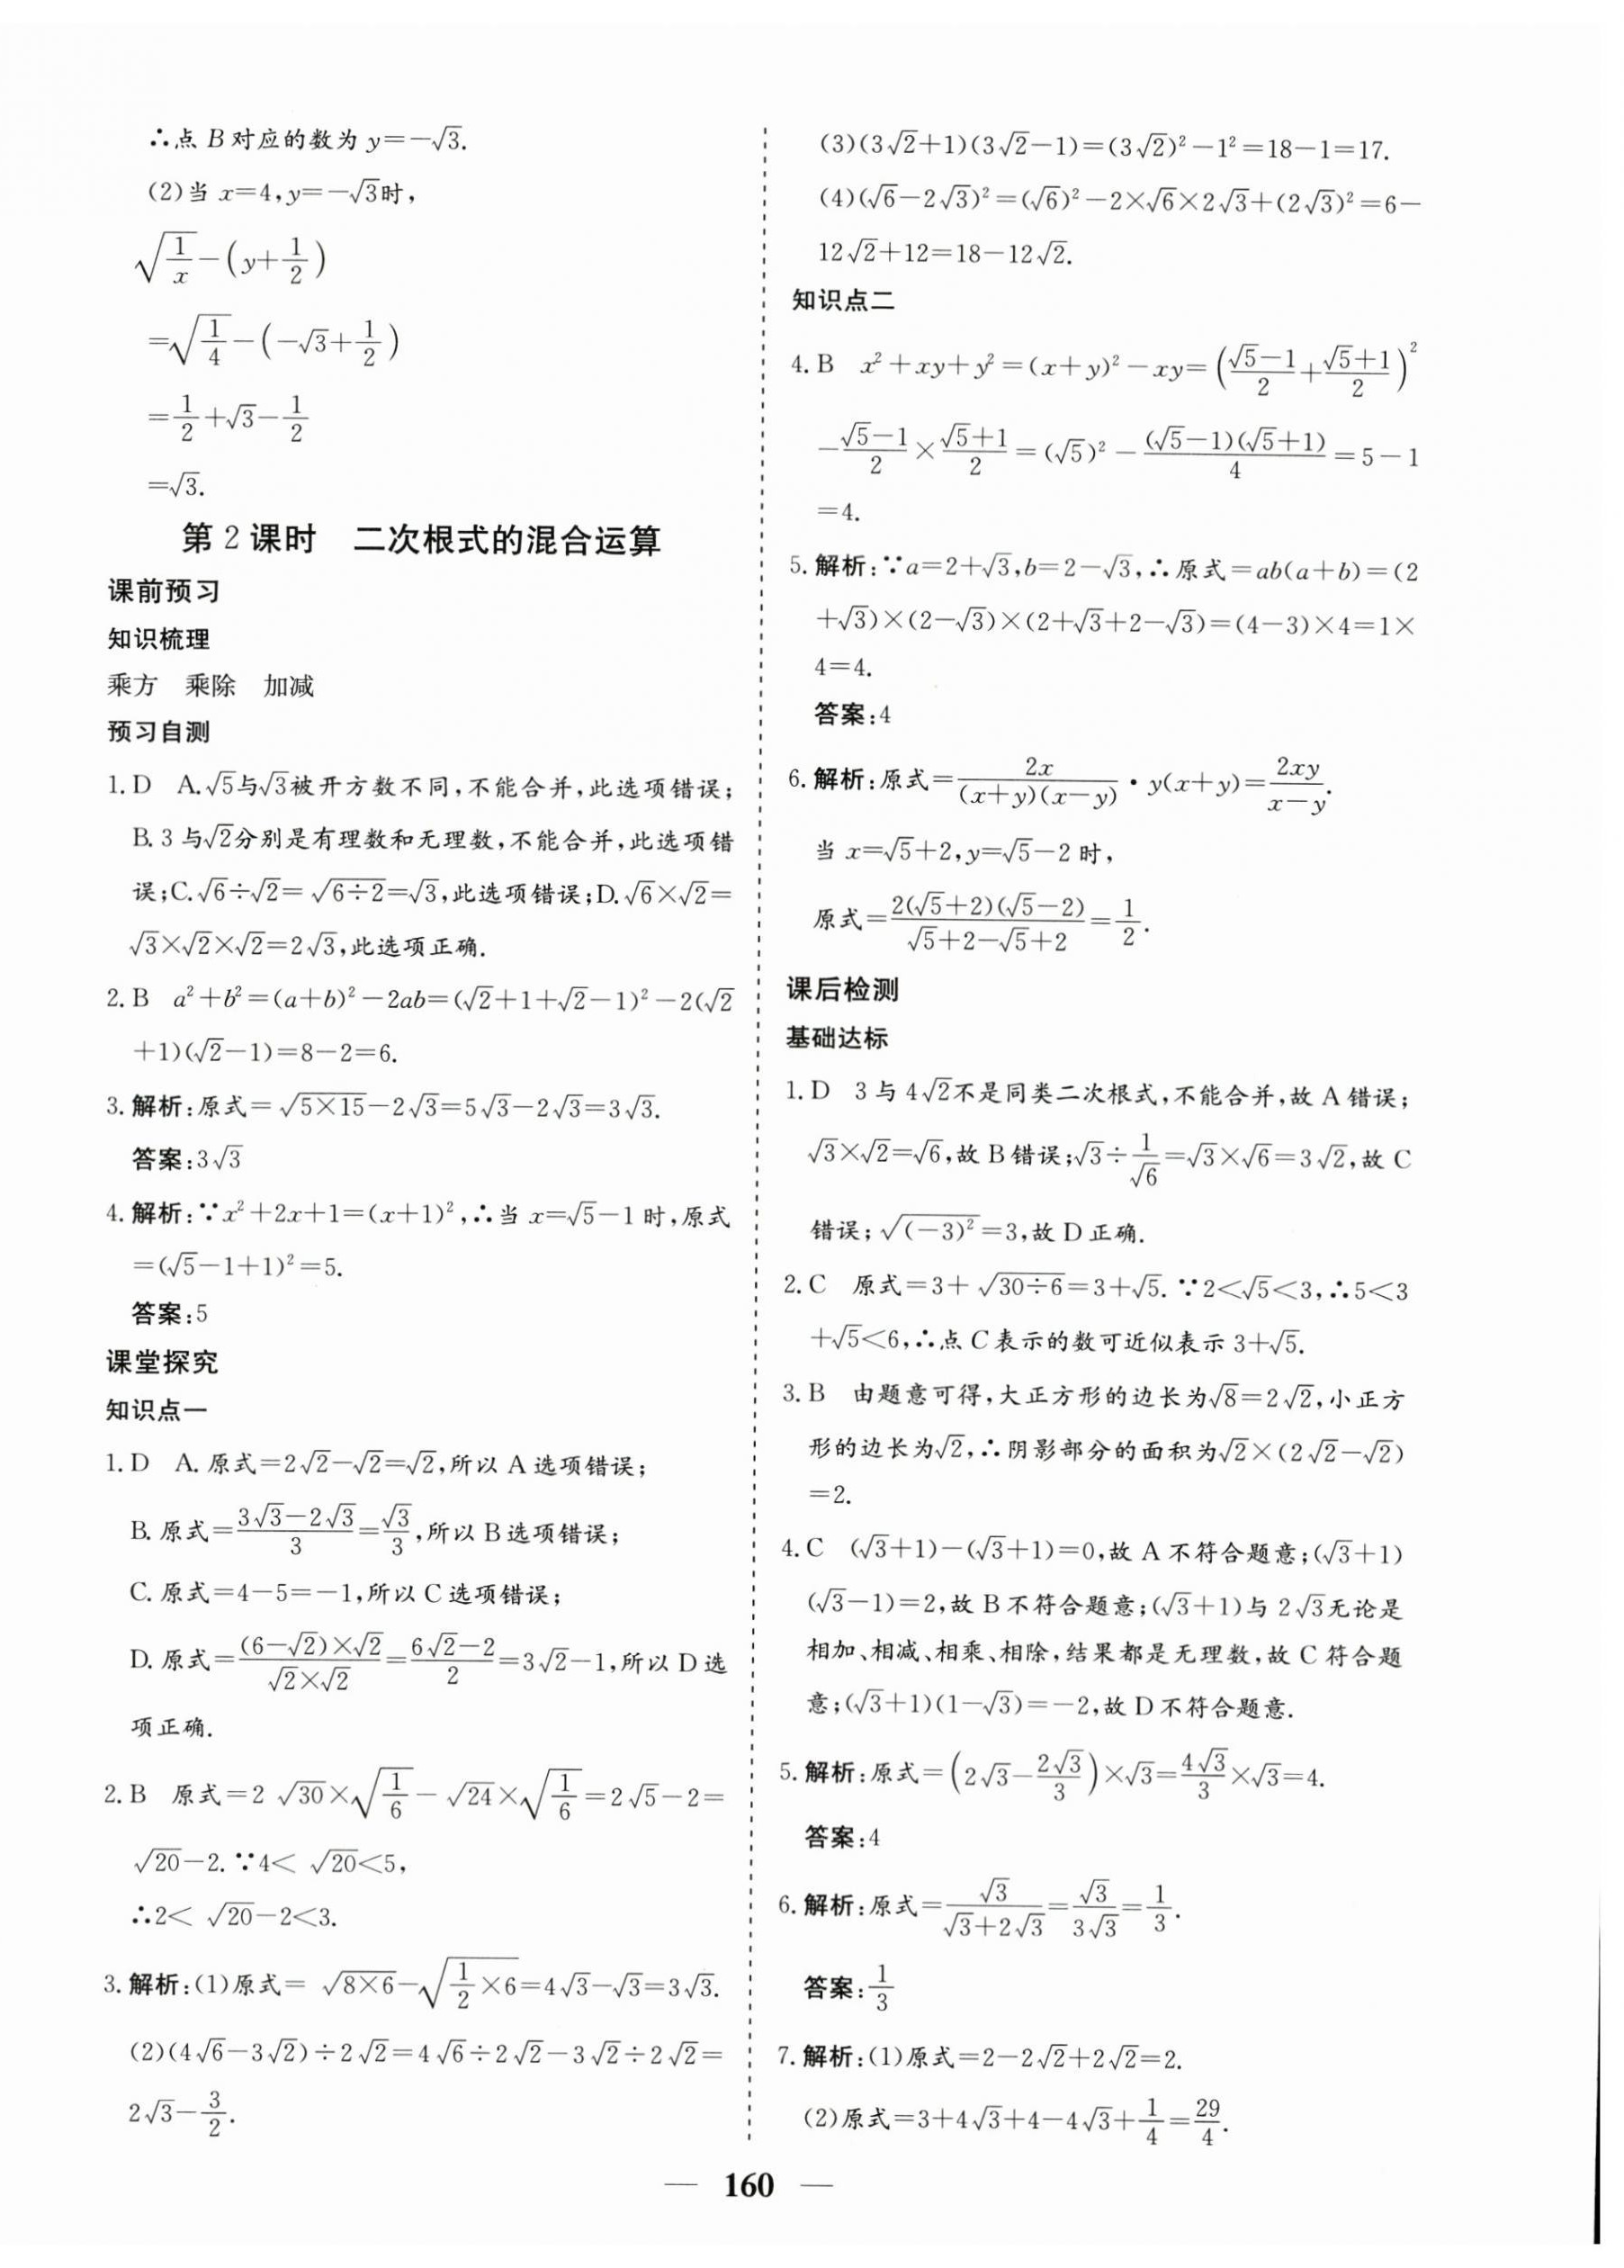 ∴点 B 对应的数为 y=-√3.
(2)当 x=4,y=-√3时,
√(1/x)-(y+1/2)
=√(1/4)-(-√3+1/2)
=1/2+√3-1/2
=√3.
第 2 课时　二次根式的混合运算
课前预习
知识梳理
乘方　乘除　加减
预习自测
1. D　A.√5与√3被开方数不同,不能合并,此选项错误;
B. 3 与√2分别是有理数和无理数,不能合并,此选项错
误;C.√6÷√2=√(6÷2)=√3,此选项错误;D.√6×√2=
√3×√2×√2=2√3,此选项正确.
2. B　a²+b²=(a+b)²-2ab=(√2+1+√2-1)²-2(√2
+1)(√2-1)=8-2=6.
3. 解析:原式=√(5×15)-2√3=5√3-2√3=3√3.
答案:3√3
4. 解析:∵x²+2x+1=(x+1)²,∴当 x=√5-1 时,原式
=(√5-1+1)²=5.
答案:5
课堂探究
知识点一
1. D　A. 原式=2√2-√2=√2,所以 A 选项错误;
B. 原式=(3√3-2√3)/3=√3/3,所以 B 选项错误;
C. 原式=4-5=-1,所以 C 选项错误;
D. 原式=((6-√2)×√2)/(√2×√2)=(6√2-2)/2=3√2-1,所以 D 选
项正确.
2. B　原式=2√30×√(1/6)-√24×√(1/6)=2√5-2=
√20-2.∵4<√20<5,
∴2<√20-2<3.
3. 解析:(1)原式=√(8×6)-√(1/2×6)=4√3-√3=3√3.
(2)(4√6-3√2)÷2√2=4√6÷2√2-3√2÷2√2=
2√3-3/2.
(3)(3√2+1)(3√2-1)=(3√2)²-1²=18-1=17.
(4)(√6-2√3)²=(√6)²-2×√6×2√3+(2√3)²=6-
12√2+12=18-12√2.
知识点二
4. B　x²+xy+y²=(x+y)²-xy=((√5-1)/2+(√5+1)/2)²
-(√5-1)/2×(√5+1)/2=(√5)²-((√5-1)(√5+1))/4=5-1
=4.
5. 解析:∵a=2+√3,b=2-√3,∴原式=ab(a+b)=(2
+√3)×(2-√3)×(2+√3+2-√3)=(4-3)×4=1×
4=4.
答案:4
6. 解析:原式=2x/((x+y)(x-y))·y(x+y)=2xy/(x-y).
当 x=√5+2,y=√5-2 时,
原式=(2(√5+2)(√5-2))/(√5+2-√5+2)=1/2.
课后检测
基础达标
1. D　3 与 4√2不是同类二次根式,不能合并,故 A 错误;
√3×√2=√6,故 B 错误;√3÷1/√6=√3×√6=3√2,故 C
错误;√((-3)²)=3,故 D 正确.
2. C　原式=3+√(30÷6)=3+√5.∵2<√5<3,∴5<3
+√5<6,∴点 C 表示的数可近似表示 3+√5.
3. B　由题意可得,大正方形的边长为√8=2√2,小正方
形的边长为√2,∴阴影部分的面积为√2×(2√2-√2)
=2.
4. C　(√3+1)-(√3+1)=0,故 A 不符合题意;(√3+1)
(√3-1)=2,故 B 不符合题意;(√3+1)与 2√3无论是
相加、相减、相乘、相除,结果都是无理数,故 C 符合题
意;(√3+1)(1-√3)=-2,故 D 不符合题意.
5. 解析:原式=(2√3-2√3/3)×√3=4√3/3×√3=4.
答案:4
6. 解析:原式=√3/(√3+2√3)=√3/(3√3)=1/3.
答案:1/3
7. 解析:(1)原式=2-2√2+2√2=2.
(2)原式=3+4√3+4-4√3+1/4=29/4.
— 160 —